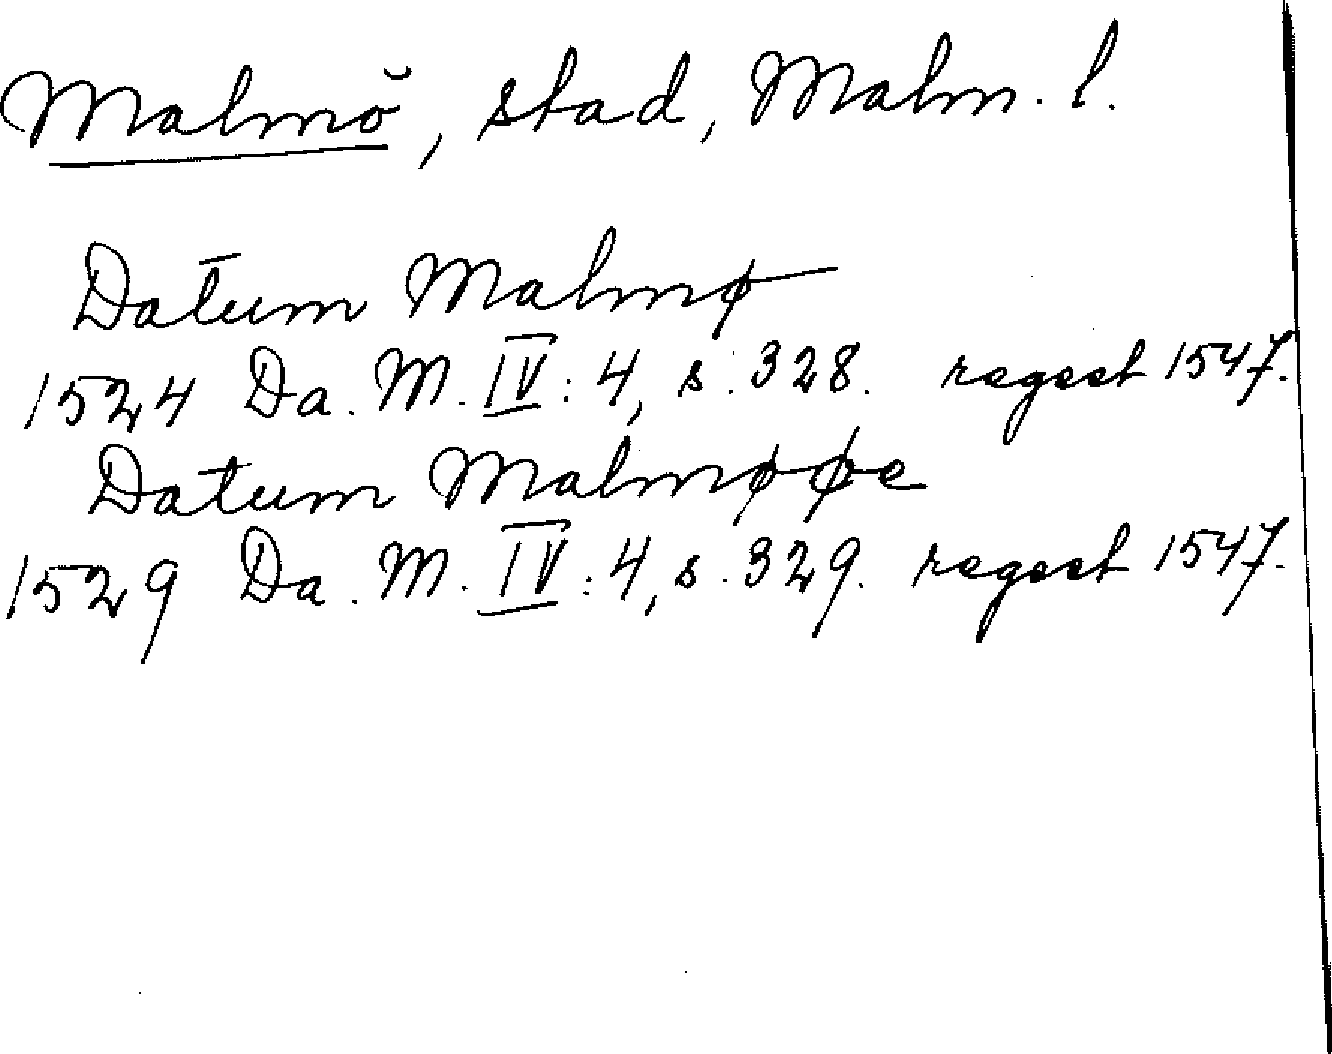 Malmö, stad, Malm. l.
Datum Malmø
1524 Da. M. IV: 4, s. 328. regest 1547.
Datum Malmøøe
1529 Da. M. IV: 4, s. 329. regest 1547.